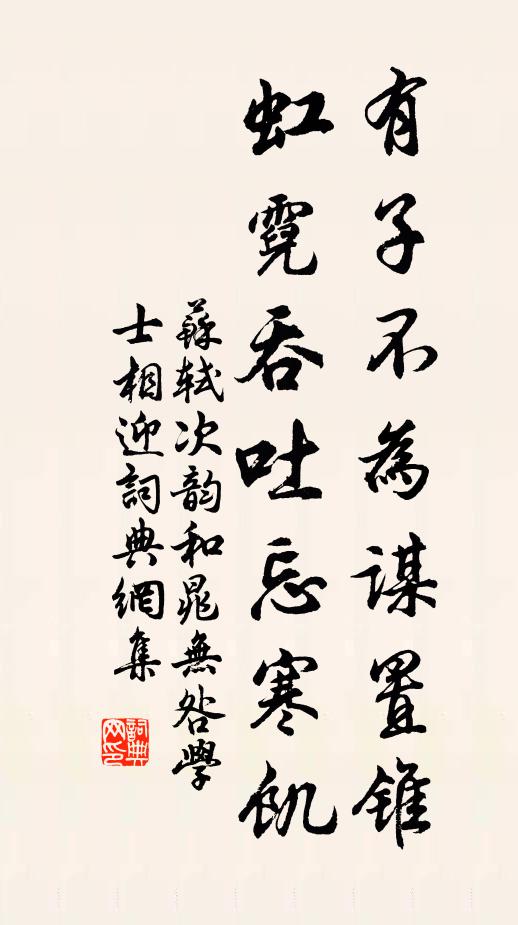 有子不為謀置錐
虹霓吞吐忘寒飢
蘇軾次韵和晁無咎學
士相迎詞典網集
詞典
网印